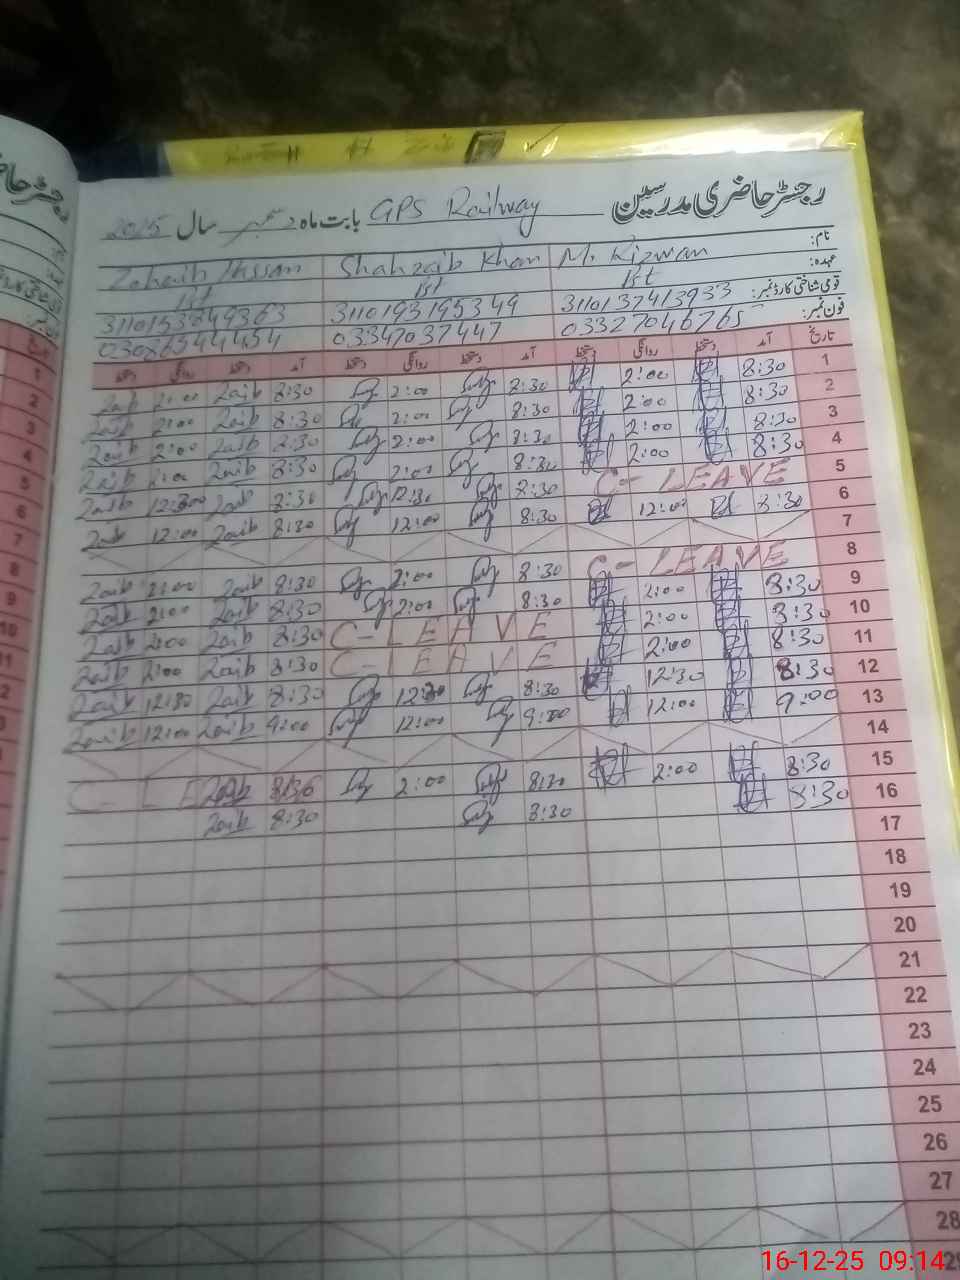 رجسٹر حاضری مدرسین GPS Railway بابت ماہ دسمبر سال 2025
نام: M. Rizwan Shahzaib Khan Zohaib Hassan
عہدہ: 1st 1st 1st
قومی شناختی کارڈ نمبر: 3110137413933 3110193195349 3110153849363
فون نمبر: 03327046765 03347037447 03086544454
تاریخ آمد دستخط روانگی دستخط آمد دستخط روانگی دستخط آمد دستخط روانگی دستخط
1 8:30 2:00 8:30 2:00 8:30 Zaib 2:00 Zaib
2 8:30 2:00 8:30 2:00 8:30 Zaib 2:00 Zaib
3 8:30 2:00 8:30 2:00 8:30 Zaib 2:00 Zaib
4 8:30 2:00 8:30 2:00 8:30 Zaib 2:00 Zaib
5 C-LEAVE 8:30 12:30 8:30 Zaib 12:30 Zaib
6 8:30 12:00 8:30 12:00 8:30 Zaib 12:00 Zaib
7
8 C-LEAVE 8:30 2:00 8:30 Zaib 2:00 Zaib
9 8:30 2:00 8:30 2:00 8:30 Zaib 2:00 Zaib
10 8:30 2:00 C-LEAVE 8:30 Zaib 2:00 Zaib
11 8:30 2:00 C-LEAVE 8:30 Zaib 2:00 Zaib
12 8:30 12:30 8:30 12:30 8:30 Zaib 12:30 Zaib
13 9:00 12:00 9:00 12:00 9:00 Zaib 12:00 Zaib
14
15 8:30 2:00 8:30 2:00 8:30 Zaib C-LE
16 8:30 8:30 8:30 Zaib
17
18
19
20
21
22
23
24
25
26
27
28
29
16-12-25 09:14